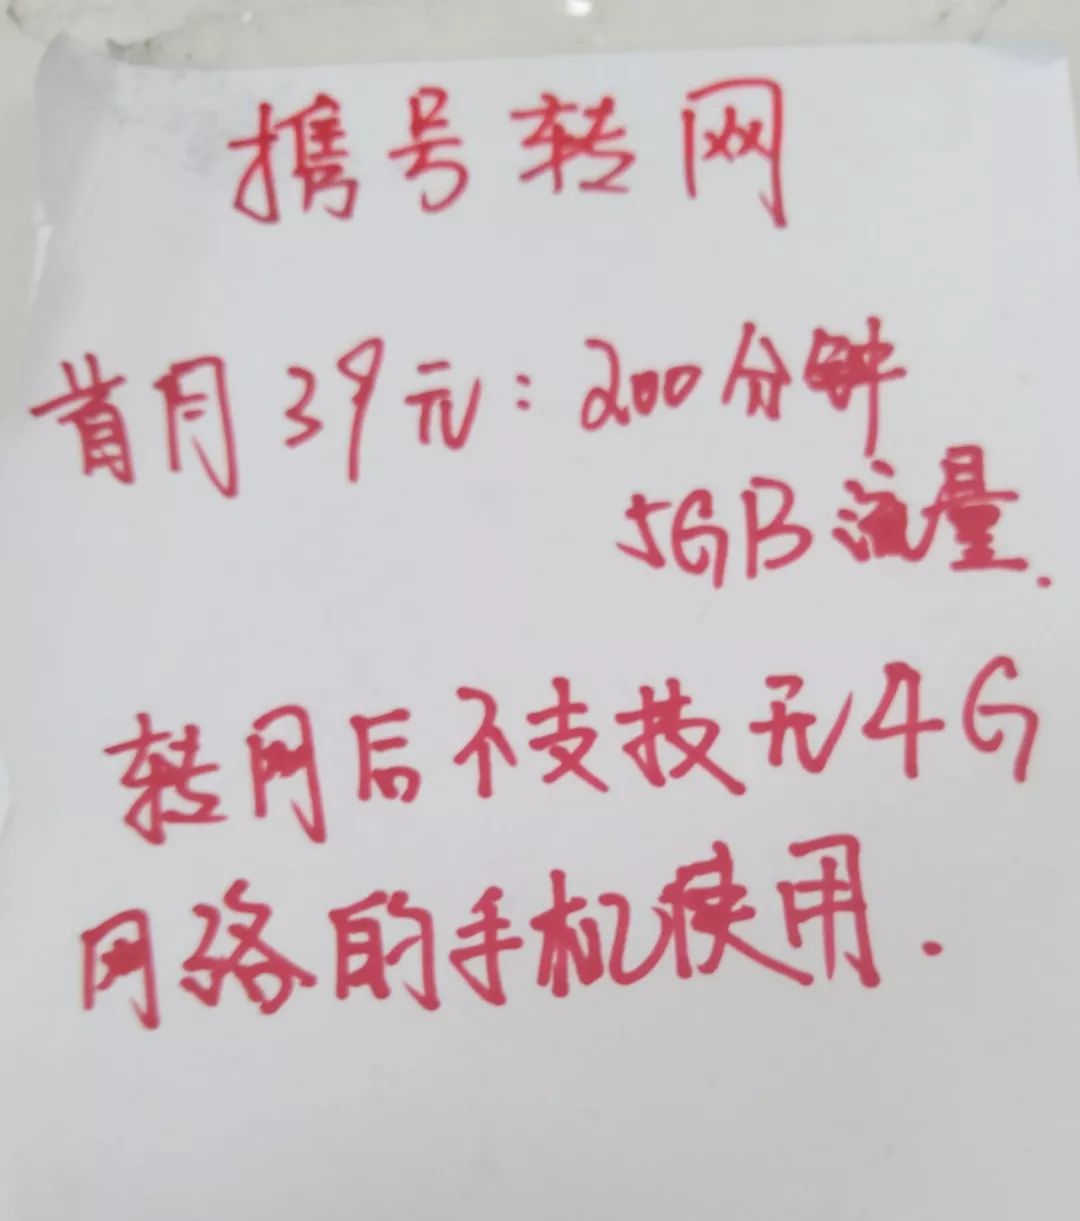 携号转网
首月39元：200分钟
5GB流量.
转网后不支技无4G
网络的手机使用.